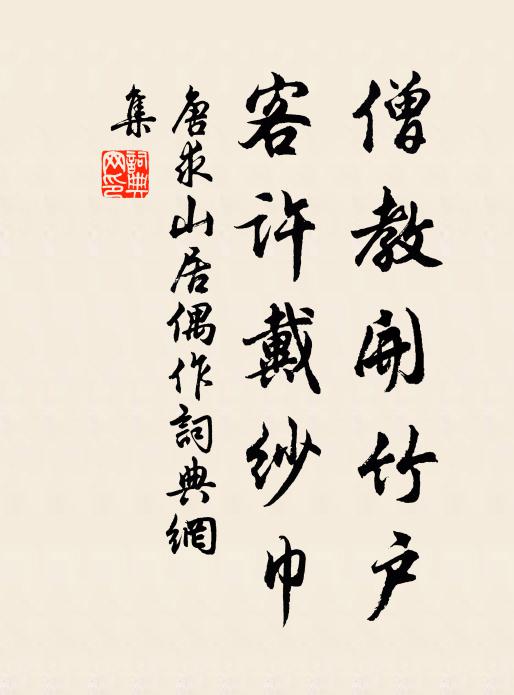 僧教開竹户
客許戴紗巾
唐求山居偶作詞典網
集
詞典網印